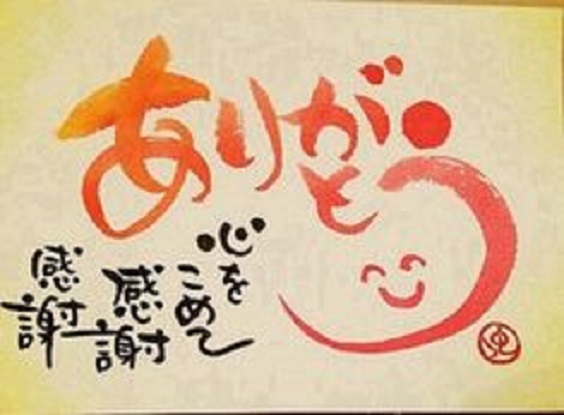 ありがとう
心を
こめて
感謝
感謝